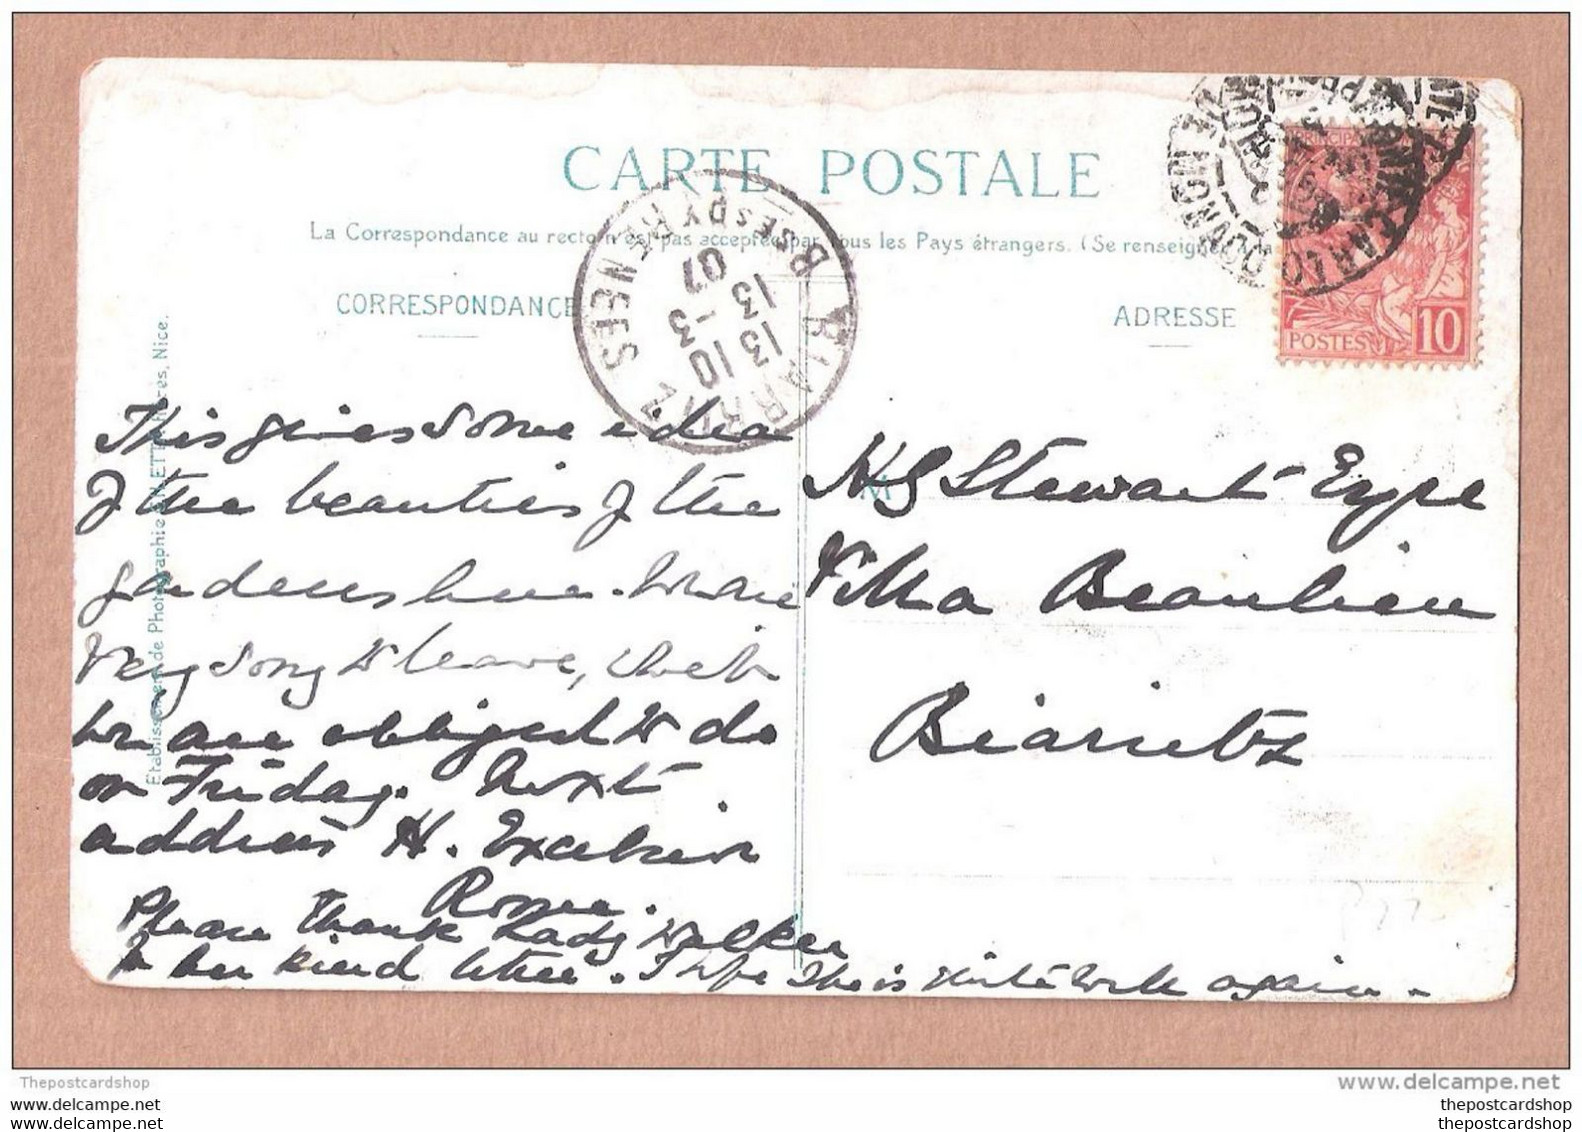 CARTE POSTALE
La Correspondance au recto n'est pas acceptée par tous les Pays étrangers. (Se renseigner à la
CORRESPONDANCE
ADRESSE
Etablissement de Photographie GILETTA frères, Nice.
BIARRITZ
BSES PYRENEES
13 10
13 -3
07
MONTE-CARLO
POSTES 10
This gives some idea
of the beauties of the
gardens here. We are
very sorry to leave, which
we are obliged to do
on Friday. Next
address H. Excelsior
Rome.
Please thank Lady Walker
for her kind letter. I hope she is quite well again.
M
H G Stewart Esqre
Villa Beaulieu
Biarritz
Thepostcardshop
www.delcampe.net
thepostcardshop
www.delcampe.net
thepostcardshop
www.delcampe.net
thepostcardshop